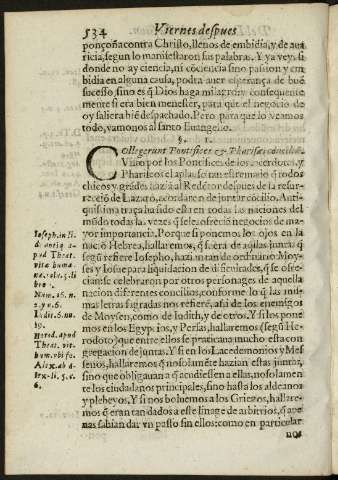 534 Viernes despues
ponçoña contra Christo, llenos de embidia, y de aua
ricia, segun lo manifestaron sus palabras. Y ya veys si
donde no ay ciencia, ni cōciencia sino passion y em
bidia en alguna causa, podra auer esperança de buē
sucesso, sino es q̄ Dios haga milagro: y consequente
mente si era bien menester, para que el negocio de
oy saliera biē despachado. Pero para que lo veamos
todo, vamonos al santo Euangelio.
§. 1.
Collegerunt Pontifices & Pharisæi cōciliū.
Visto por los Pontifices de los sacerdotes, y
Phariseos el aplauso tan estremado q̄ todos
chicos y grādes haziā al Redētor despues de la resur-
reció de Lazaro, acordaron de jūtar cōcilio. Anti-
quissima traça ha sido esta en todas las naciones del
mūdo todas la vezes q̄ se les ofreciò negocios de ma-
yor importancia. Porque si ponemos los ojos en la
naciō Hebrea, hallaremos, q̄ fuera de aq̄llas juntas q̄
segū refiere Iosepho, haziā tan de ordinario Moy-
ses y Iosue para liquidacion de dificultades, q̄ se ofre-
cian: se celebraron por otros personages de aquella
nacion diferentes concilios, conforme lo q̄ las mis-
mas letras sagradas nos refierē, assi de los enemigos
de Moysen, como de Iudith, y de otros. Y si los pone
mos en los Egypcios, y Persas, hallaremos (segū He-
rodoto) que entre ellos se praticaua mucho esta con
gregacion de juntas. Y si en los Lacedemonios y Mes
senos, hallaremos q̄ no solamēte hazian estas juntas,
sino que obligauan a q̄ acudiessen a ellas, no solamen
te los ciudadanos principales, sino hasta los aldeanos
y plebeyos. Y si nos boluemos a los Griegos, hallare-
mos q̄ eran tan dados a este linage de arbitrios, q̄ ape
nas sabian dar vn passo sin ellos: como en particular
nos
Ioseph. in li.
d. antiq. a-
pud Theat.
vitæ huma
næ. vol. 5. li
bro
Num. 16. n.
2. y 6.
Iudit. 6. nu.
19.
Herod. apud
Theat. vit.
hum. vbi sv.
Alex. ab A-
lex. li. 5. c.
6.